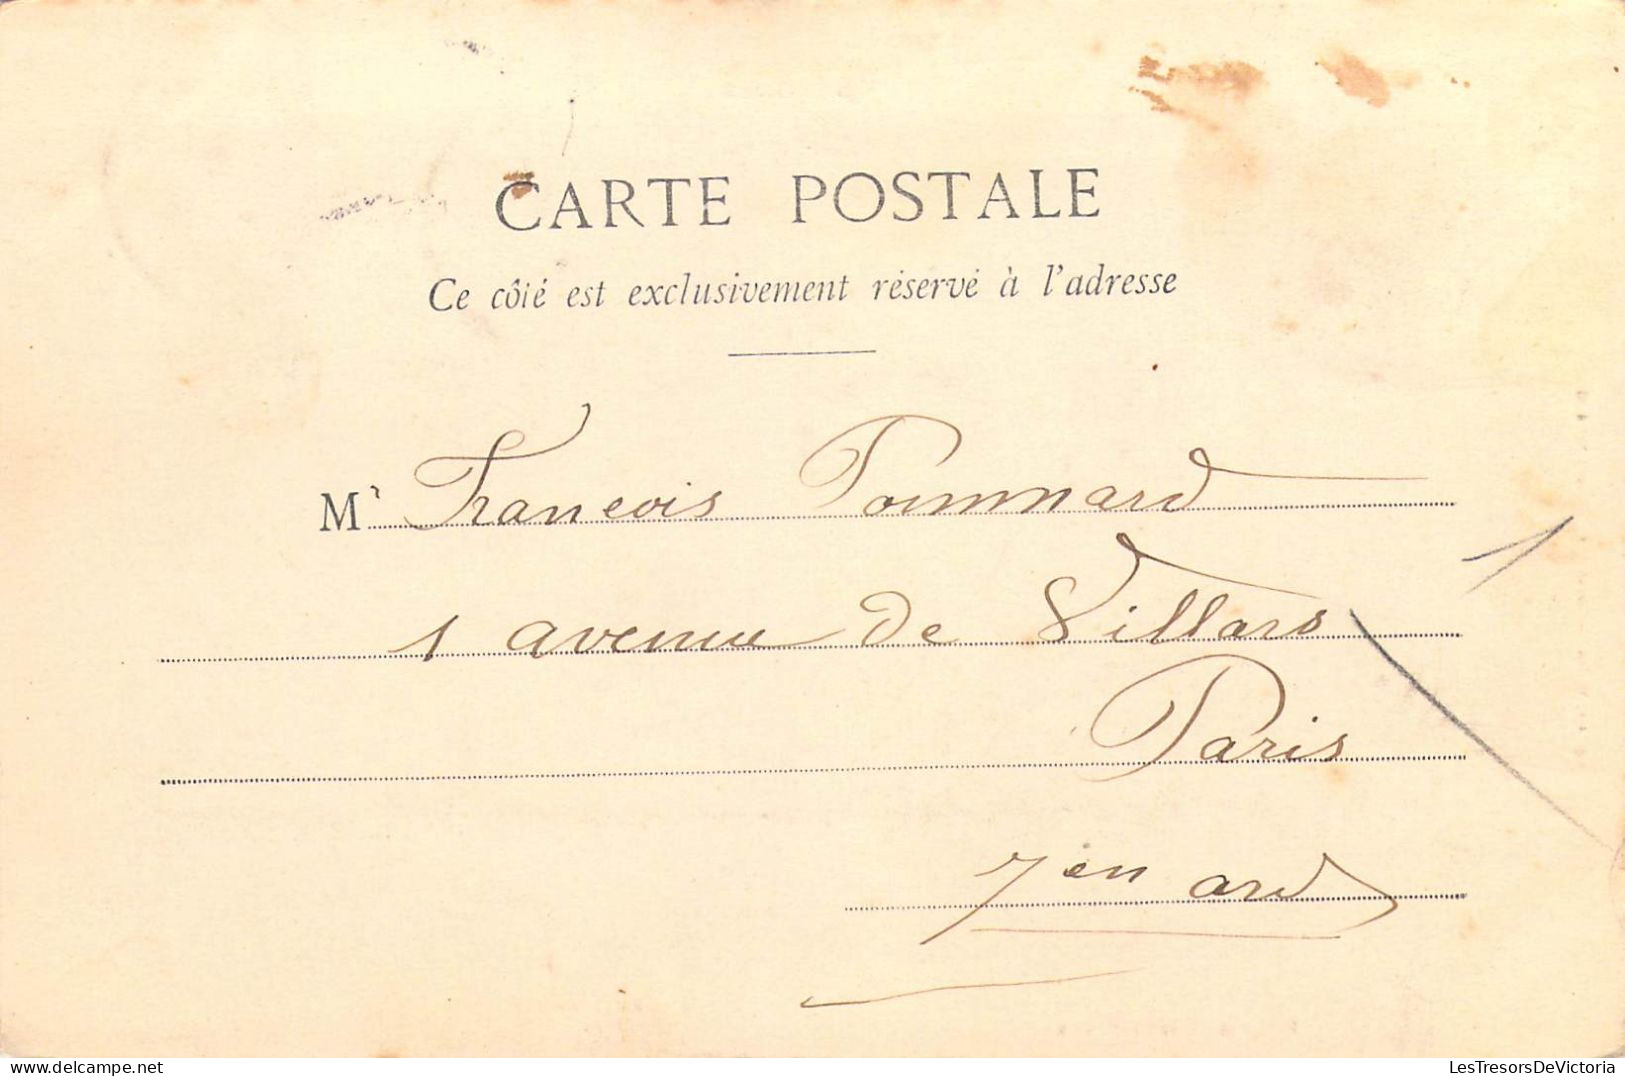 CARTE POSTALE
Ce côté est exclusivement réservé à l'adresse
M r Francois Pommard
1 avenue de Villars
Paris
7 en ard
LesTresorsDeVictoria